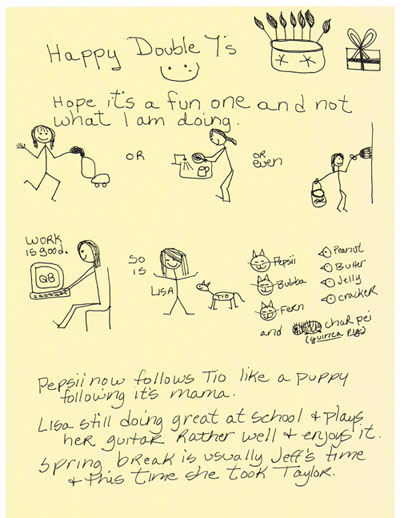 Happy Double 7's
Hope it's a fun one and not
what I am doing.
OR
OR
even
WORK
IS good.
QB
SO
IS
LISA
TIO
Pepsii
Bubba
Fern
Peanut
Butter
Jelly
cracker
and char pei
(guinea pig)
Pepsii now follows Tio like a puppy
following it's mama.
Lisa still doing great at school & plays
her guitar Rather well & enjoys it.
Spring break is usually Jeff's time
& this time she took Taylor.